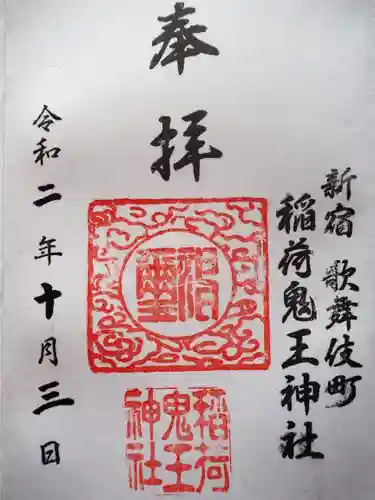 奉拝
新宿 歌舞伎町
稲荷鬼王神社
令和二年十月三日
稲荷
鬼王
神社